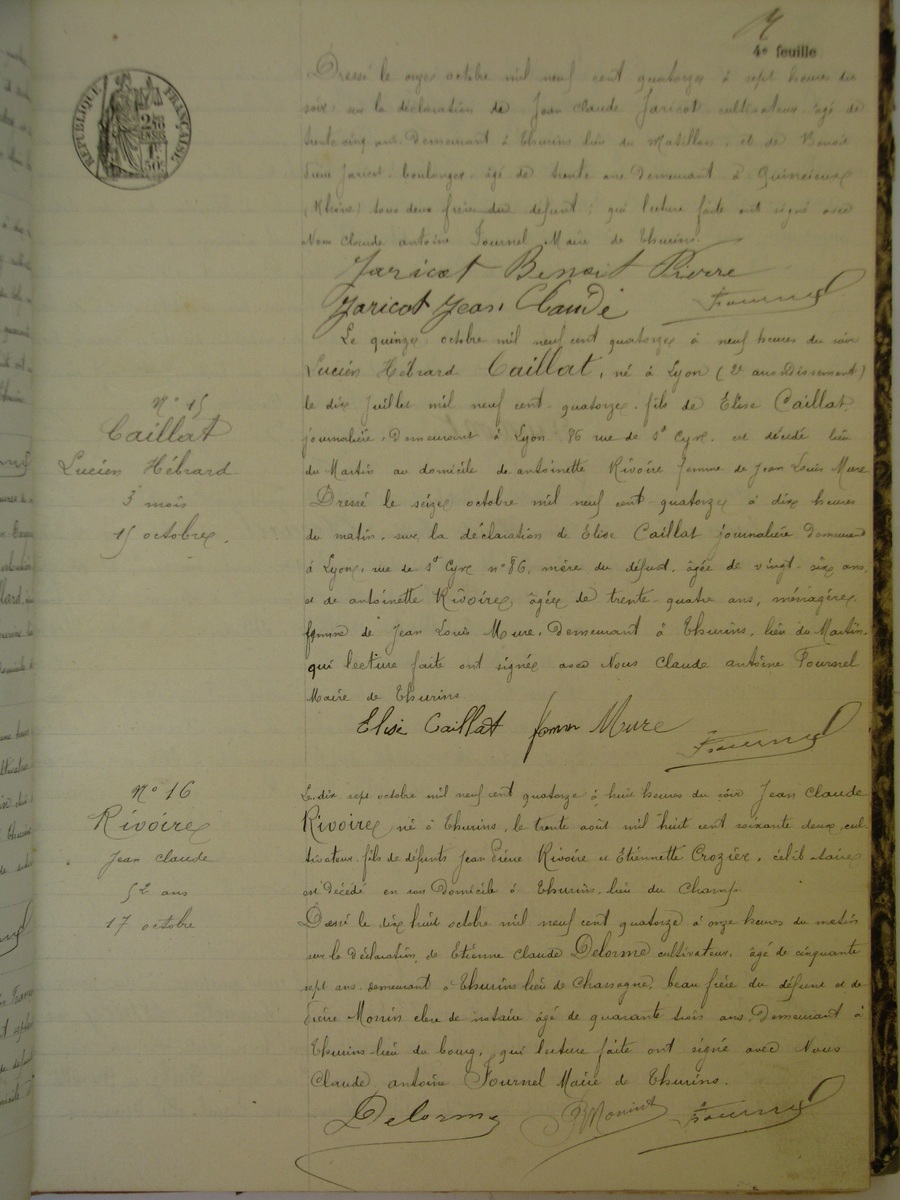 4e feuille
RÉPUBLIQUE FRANÇAISE
Dressé le onze octobre mil neuf cent quatorze à sept heures du
soir sur la déclaration de Jean Claude Jaricot cultivateur âgé de
trente cinq ans. Demeurant à Thurins lieu du Matillon, et de Benoit
Pierre Jaricot boulanger âgé de trente ans Demeurant à Quincieux
(Rhône) tous deux frère du défunt; qui lecture faite ont signé avec
Nous Claude antoine Fournel Maire de Thurins.
Jaricot Benoit Pierre
Jaricot Jean Claude Fournel
Le quinze octobre mil neuf cent quatorze à neuf heures du soir
N° 15
Caillat
Lucien Hébrard
3 mois
15 octobre.
Lucien Hébrard Caillat, né à Lyon (2e arrondissement)
le dix Juillet mil neuf cent quatorze. fils de Elise Caillat,
journalière, Demeurant à Lyon 86 rue de St Cyr. est décédé lieu
du Martin au domicile de antoinette Rivoire femme de Jean Louis Mure
Dressé le seize octobre mil neuf cent quatorze à dix heures
du matin. sur la déclaration de Elise Caillat journalière Demeurant
à Lyon, rue de St Cyr n° 86, mère du défunt. âgée de vingt-six ans,
et de antoinette Rivoire, âgée de trente-quatre ans, ménagère
femme de Jean Louis Mure, Demeurant à Thurins, lieu du Martin.
qui lecture faite ont signée avec Nous Claude antoine Fournel
Maire de Thurins
Elise Caillat femme Mure Fournel
N° 16
Rivoire
Jean Claude
52 ans
17 octobre
Le dix sept octobre mil neuf cent quatorze à huit heures du soir Jean Claude
Rivoire, né à Thurins, le trente août mil huit cent soixante deux, cul
tivateur. fils de défunts Jean Pière Rivoire et Etiennette Crozier, célibataire
est décédé en son Domicile à Thurins. lieu du Champ.
Dressé le dix huit octobre mil neuf cent quatorze à onze heures du matin
sur la déclaration, de Etienne Claude Delorme cultivateur. âgé de cinquante
sept ans. Demeurant à Thurins lieu de Chassagne, beau frère du défunt et de
Pière Monin clerc de notaire âgé de quarante trois ans. Demeurant à
Thurins lieu du bourg. qui lecture faite ont signé avec Nous
Claude antoine Fournel Maire de Thurins.
Delorme Fournel